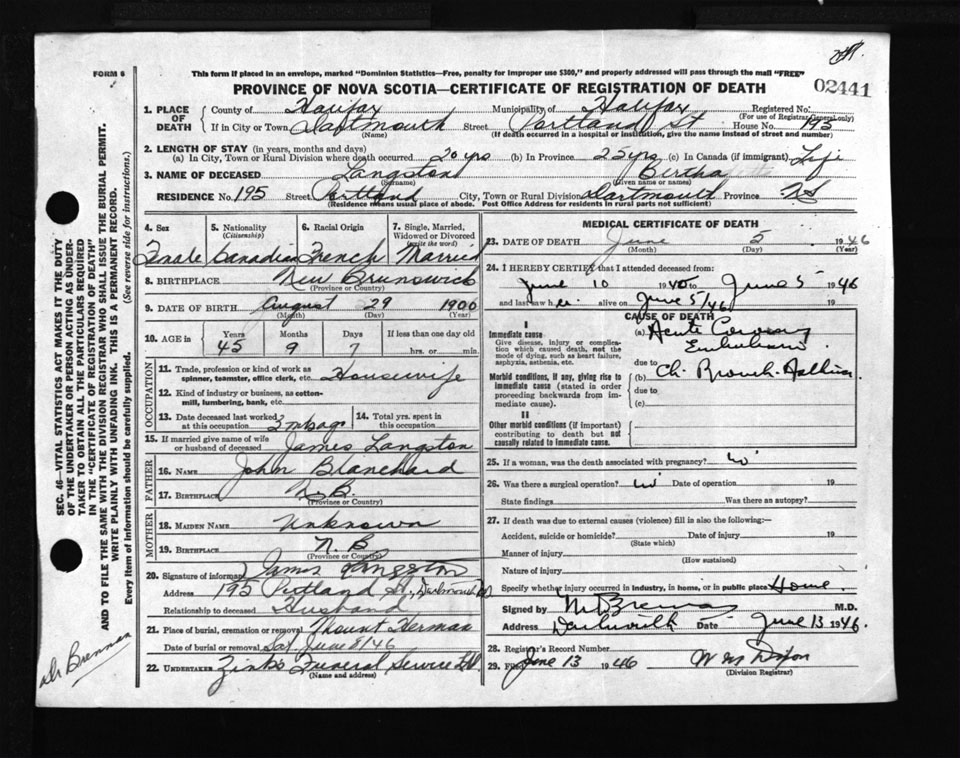 FORM 6
This form if placed in an envelope, marked "Dominion Statistics—Free, penalty for improper use $300," and properly addressed will pass through the mail "FREE"
PROVINCE OF NOVA SCOTIA—CERTIFICATE OF REGISTRATION OF DEATH
02441
1. PLACE OF DEATH County of Halifax Municipality of Halifax Registered No. (For use of Registrar General only)
If in City or Town Dartmouth Street Portland St House No. 195
(Name) (If death occurred in a hospital or institution, give the name instead of street and number)
2. LENGTH OF STAY (in years, months and days)
(a) In City, Town or Rural Division where death occurred 20 yrs (b) In Province 25 yrs (c) In Canada (if immigrant) Life
3. NAME OF DECEASED Langston Bertha
(Surname) (Given name or names)
RESIDENCE No. 195 Street Portland City, Town or Rural Division Dartmouth Province NS
(Residence means usual place of abode. Post Office Address for residents in rural parts not sufficient)
4. Sex 5. Nationality (Citizenship) 6. Racial Origin 7. Single, Married, Widowed or Divorced (write the word)
Female Canadian French Married
8. BIRTHPLACE New Brunswick
(Province or Country)
9. DATE OF BIRTH August 29 1900
(Month) (Day) (Year)
10. AGE in Years Months Days If less than one day old
45 9 7 hrs. or min.
OCCUPATION
11. Trade, profession or kind of work as spinner, teamster, office clerk, etc. Housewife
12. Kind of industry or business, as cotton-mill, lumbering, bank, etc.
13. Date deceased last worked at this occupation 2 m ago 14. Total yrs. spent in this occupation
15. If married give name of wife or husband of deceased James Langston
FATHER
16. NAME John Blanchard
17. BIRTHPLACE N.B.
(Province or Country)
MOTHER
18. MAIDEN NAME Unknown
19. BIRTHPLACE N.B
(Province or Country)
20. Signature of informant James Langston
Address 195 Portland St., Dartmouth
Relationship to deceased Husband
21. Place of burial, cremation or removal Mount Herman
Date of burial or removal Sat June 8/46
22. UNDERTAKER Zinks Funeral Service Ltd.
(Name and address)
MEDICAL CERTIFICATE OF DEATH
23. DATE OF DEATH June 5 1946
(Month) (Day) (Year)
24. I HEREBY CERTIFY that I attended deceased from:
June 10 1940 to June 5 1946
and last saw her alive on June 5/46
CAUSE OF DEATH
I
Immediate cause (a) Acute Coronary
Give disease, injury or complication which caused death, not the mode of dying, such as heart failure, asphyxia, asthenia, etc. Embolism
due to
Morbid conditions, if any, giving rise to immediate cause (stated in order proceeding backwards from immediate cause). (b) Ch. Bronch. Asthma
due to
(c)
II
Other morbid conditions (if important) contributing to death but not causally related to immediate cause.
25. If a woman, was the death associated with pregnancy? No
26. Was there a surgical operation? No Date of operation 19
State findings Was there an autopsy?
27. If death was due to external causes (violence) fill in also the following:—
Accident, suicide or homicide? Date of injury 19
(State which)
Manner of injury
(How sustained)
Nature of injury
Specify whether injury occurred in industry, in home, or in public place Home
Signed by M D Brennan M.D.
Address Dartmouth Date June 13 1946.
28. Registrar's Record Number
29. Filed June 13 1946 W M Dixon
(Division Registrar)
SEC. 46—VITAL STATISTICS ACT MAKES IT THE DUTY OF THE UNDERTAKER OR PERSON ACTING AS UNDERTAKER TO OBTAIN ALL THE PARTICULARS REQUIRED IN THE "CERTIFICATE OF REGISTRATION OF DEATH" AND TO FILE THE SAME WITH THE DIVISION REGISTRAR WHO SHALL ISSUE THE BURIAL PERMIT.
WRITE PLAINLY WITH UNFADING INK. THIS IS A PERMANENT RECORD.
Every item of information should be carefully supplied. (See reverse side for instructions.)
Dr Brennan